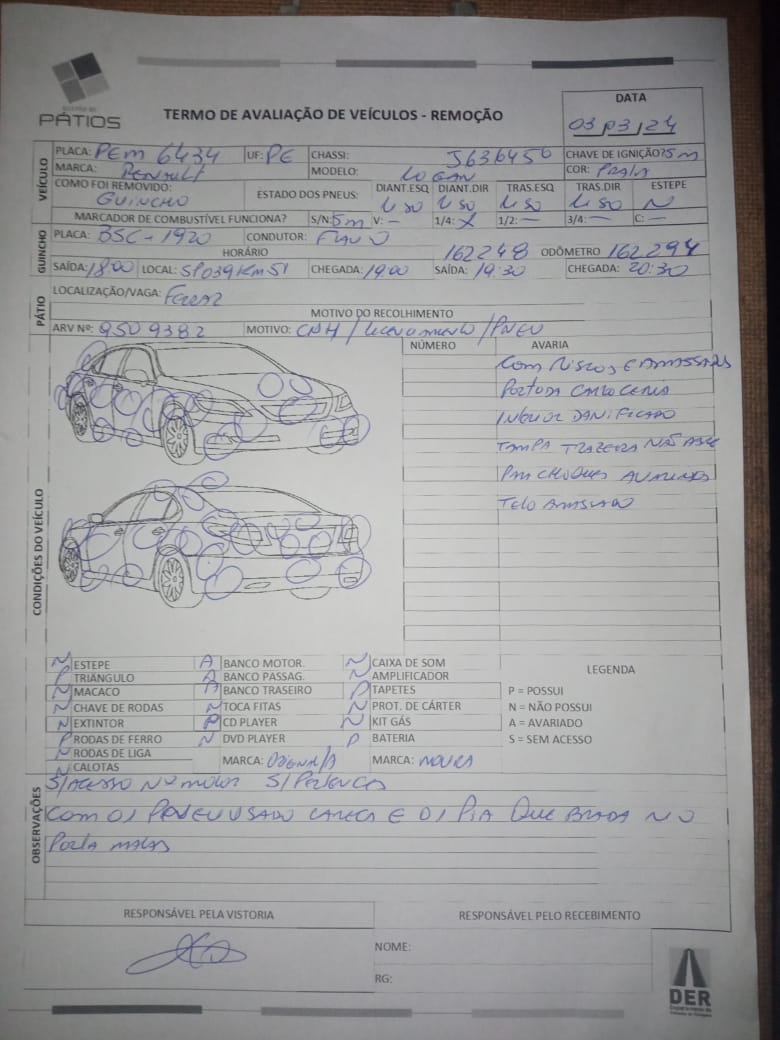 PÁTIOS
TERMO DE AVALIAÇÃO DE VEÍCULOS - REMOÇÃO
DATA
03/03/24
VEÍCULO
PLACA: PEM 6434 UF: PE CHASSI: J636450 CHAVE DE IGNIÇÃO? Sim
MARCA: Renault MODELO: LOGAN COR: PRATA
COMO FOI REMOVIDO: GUINCHO ESTADO DOS PNEUS: DIANT.ESQ USO DIANT.DIR USO TRAS.ESQ USO TRAS.DIR USO ESTEPE N
MARCADOR DE COMBUSTÍVEL FUNCIONA? S/N: Sim V: — 1/4: X 1/2: — 3/4: — C: —
GUINCHO
PLACA: BSC-1920 CONDUTOR:
HORÁRIO 162248 ODÔMETRO 162294
SAÍDA: 18:00 LOCAL: SP039 KM 51 CHEGADA: 19:00 SAÍDA: 19:30 CHEGADA: 20:30
PÁTIO
LOCALIZAÇÃO/VAGA:
MOTIVO DO RECOLHIMENTO
ARV Nº: 9509382 MOTIVO: CNH / licenciamento / PNEU
CONDIÇÕES DO VEÍCULO
NÚMERO AVARIA
COM RISCOS E AMASSADOS
POR TODA CARROCERIA
INTERIOR DANIFICADO
TAMPA TRAZEIRA NÃO ABRE
PARACHOQUES AVARIADOS
TETO AMASSADO
N ESTEPE A BANCO MOTOR. N CAIXA DE SOM
P TRIÂNGULO A BANCO PASSAG. N AMPLIFICADOR
N MACACO A BANCO TRASEIRO P TAPETES
N CHAVE DE RODAS N TOCA FITAS N PROT. DE CÁRTER
N EXTINTOR P CD PLAYER N KIT GÁS
P RODAS DE FERRO N DVD PLAYER P BATERIA
N RODAS DE LIGA MARCA: ORIGINAL/A MARCA: MOURA
N CALOTAS
LEGENDA
P = POSSUI
N = NÃO POSSUI
A = AVARIADO
S = SEM ACESSO
OBSERVAÇÕES
S/ACESSO Nº MOTOR S/PERTENCES
COM 01 PENEU USADO CARECA E 01 PIA QUEBRADA NO
PORTA MALAS
RESPONSÁVEL PELA VISTORIA
RESPONSÁVEL PELO RECEBIMENTO
NOME:
RG:
DER